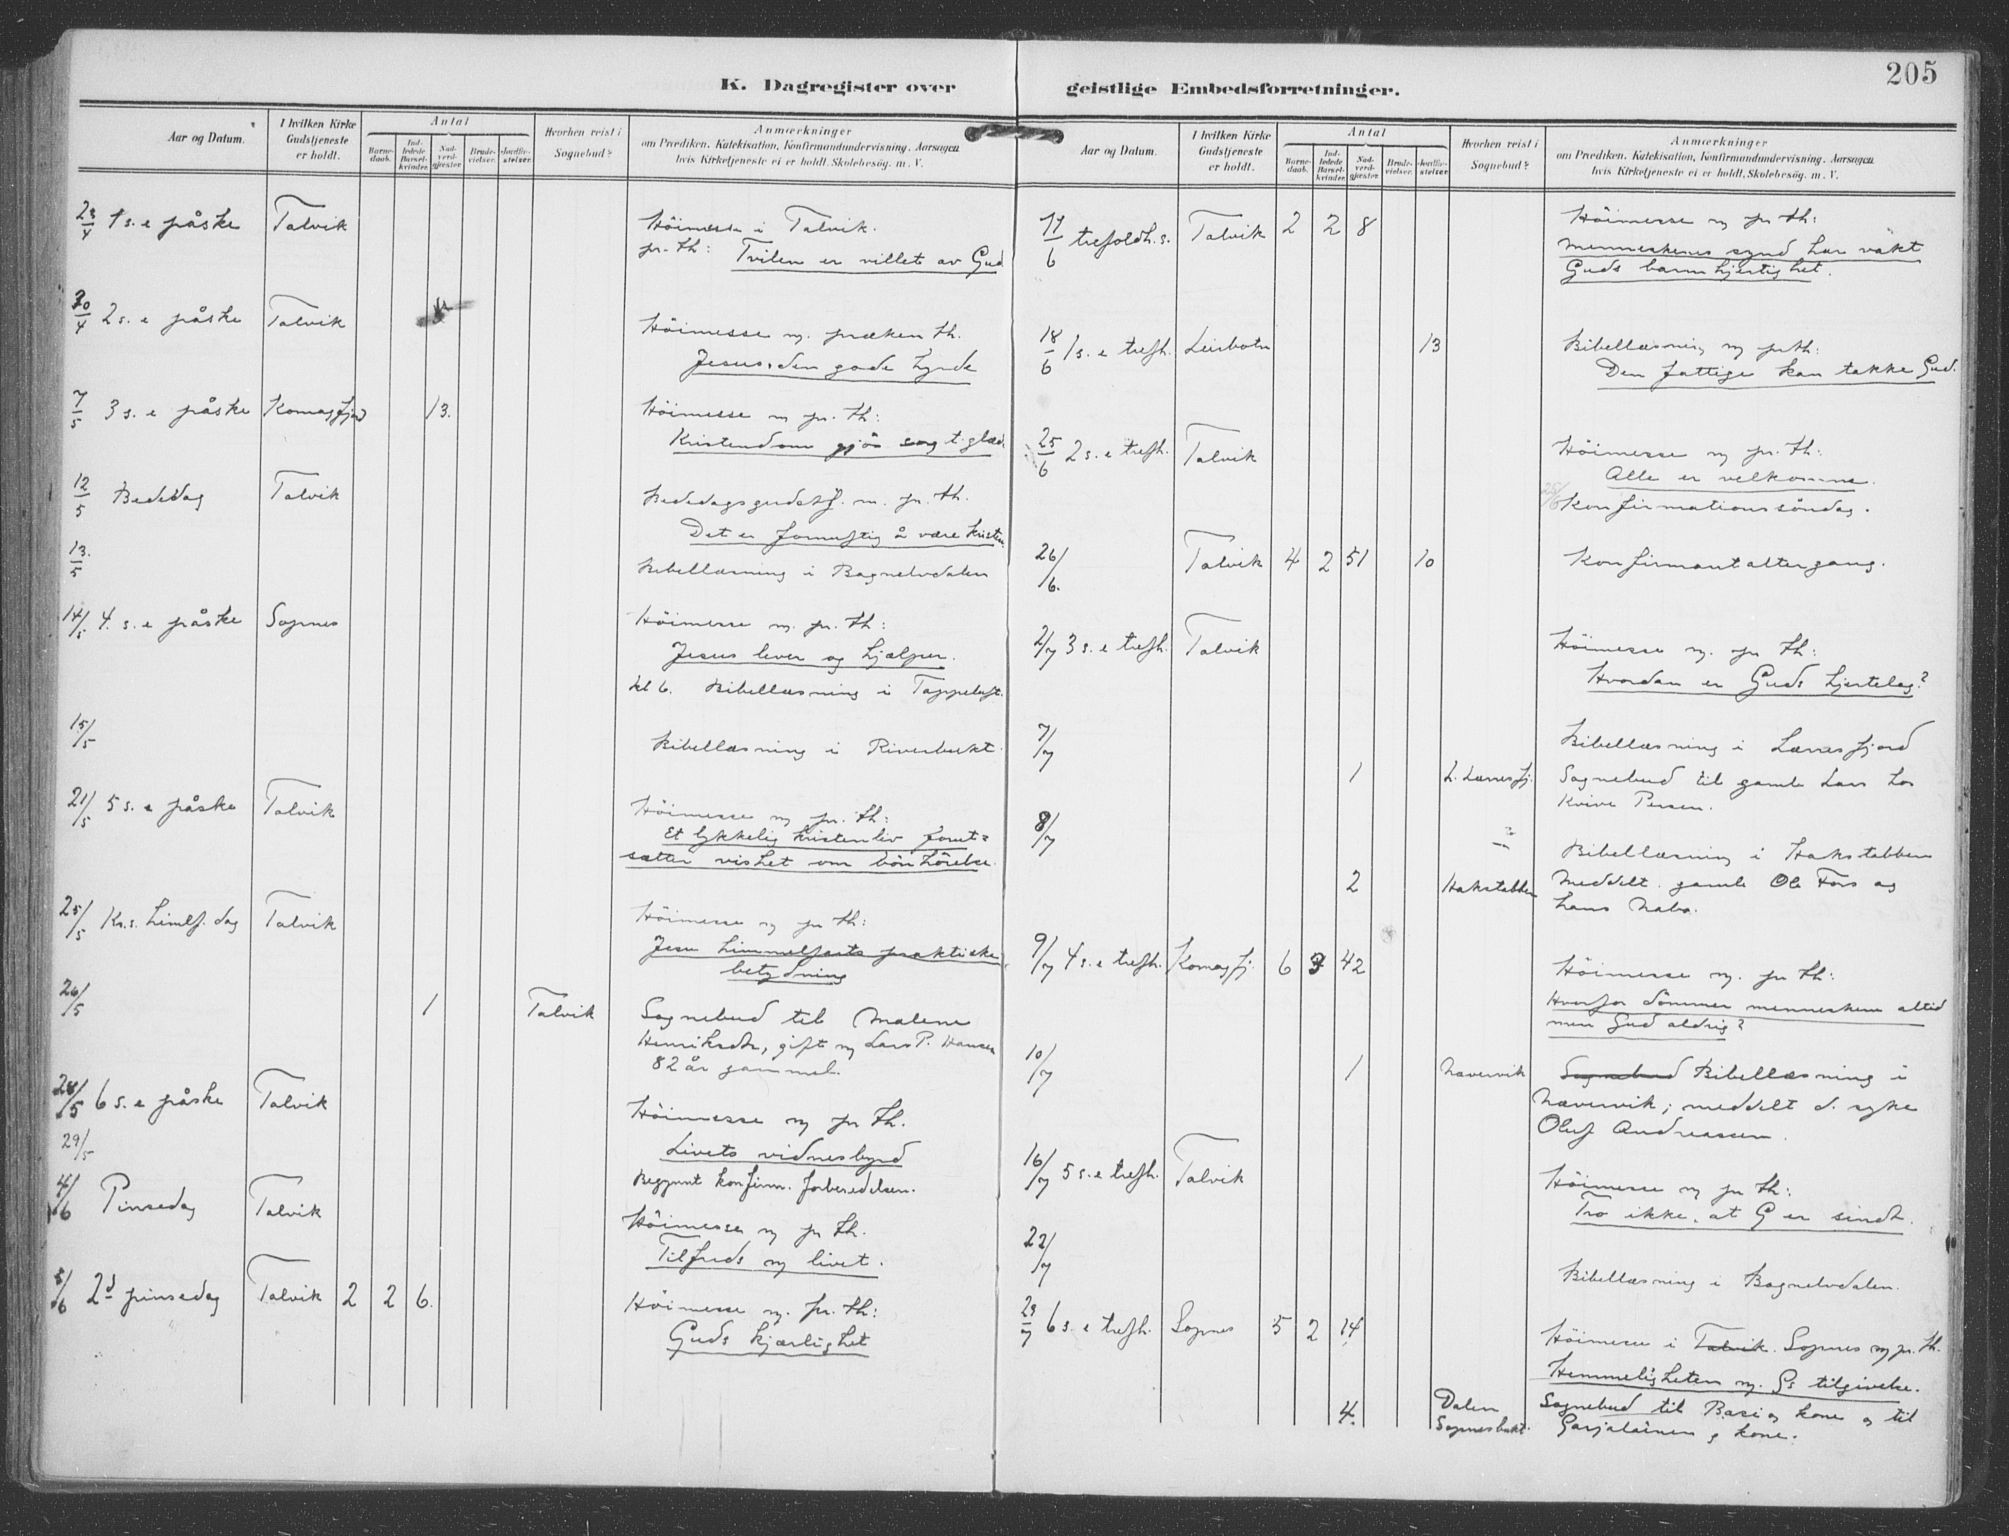 205
K. Dagregister over geistlige Embedsforretninger.
Aar og Datum. I hvilken Kirke Gudstjeneste er holdt. Antal Hvorhen reist i Sognebud? Anmærkninger
Barnedaab. Indledede Barselkvinder. Nadverdgjester. Brudevielser. Jordfæstelser.
om Prædiken, Katekisation, Konfirmandundervisning, Aarsagen
hvis Kirketjeneste ei er holdt, Skolebesøg. m. V.
23/4 1 s. e påske Talvik Höimesse i Talvik.
pr. th: Tvilen er villet av Gud
30/4 2 s. e påske Talvik Höimesse m. præken th.
Jesus, den gode hyrde
7/5 3 s. e påske Komagfjord 13. Höimesse m pr. th:
Kristendom gjör
12/5 Bededag Talvik Bededagsgudstj. m. pr. th.
Det er fornuftig å være kristen
13/5 Bibellæsning i Bognelvdalen
14/5 4. s. e påske Sopnes Höimesse m. pr. th:
Jesus lever og hjælper.
kl 6. Bibellæsning i Tappeluft.
15/5 Bibellæsning i Riverbukt.
21/5 5 s. e påske Talvik Höimesse m pr. th:
Et lykkelig kristenliv forut=
sætter vished om bönhörelse.
25/5 Kr. himlf. dag Talvik Höimesse m pr th:
Jesu himmelfarts praktiske
betydning
26/5 1 Talvik Sognebud til Malene
Henriksdtr, gift m Lars P. Hansen
82 år gammel.
28/5 6 s. e påske Talvik Höimesse m pr th.
Livets vidnesbyrd
29/5 Begynt konfirm. forberedelsen.
4/6 Pinsedag Talvik Höimesse m pr th.
Tilfreds m livet.
5/6 2d pinsedag Talvik 2 2 6. Höimesse m. pr. th:
Guds kjærlighet
Aar og Datum. I hvilken Kirke Gudstjeneste er holdt. Antal Hvorhen reist i Sognebud? Anmærkninger
Barnedaab. Indledede Barselkvinder. Nadverdgjester. Brudevielser. Jordfæstelser.
om Prædiken, Katekisation, Konfirmandundervisning, Aarsagen
hvis Kirketjeneste ei er holdt, Skolebesøg. m. V.
11/6 trefoldh. s. Talvik 2 2 8 Höimesse m pr th:
Menneskenes synd har vakt
Guds barmhjertighet.
18/6 1 s. e trefh. Leirbotn 13 Bibellæsning m pr th:
Den fattige kan takke Gud.
25/6 2 s. e trefh. Talvik Höimesse m pr. th:
Alle er velkomne.
25/6 Konfirmationssöndag.
26/6. Talvik 4 2 51 10 Konfirmantaltergang.
2/7 3 s. e trefh. Talvik Höimesse m. pr th:
Hvordan er Guds hjertelag?
7/7 Bibellæsning i Lærresfjord
1 L. Lærresfj. Sognebud til gamle Lars
Persen.
8/7 Bibellæsning i Hakstabben
2 Hakstabben Meddelt gamle Ole Fors og
Hans
9/7 4 s. e trefh. Komagfj. 6 3 42 Höimesse m. pr th:
Hvorfor dömmer menneskene altid
men Gud aldrig?
10/7 1 Nævervik Sognebud Bibellæsning i
Nævervik; meddelt d. syke
Oluf Andreassen.
16/7 5 s. e trefh. Talvik Höimesse m pr th:
Tro ikke, at G er sindt.
22/7 Bibellæsning i Bognelvdalen.
23/7 6 s. e trefh. Sopnes 5 2 14 Höimesse i Talvik. Sopnes m pr. th.
Hemmeligheten m. Gs tilgivelse.
4. Dalen Sognebud til kone og til
Sopnesbukt. kone.